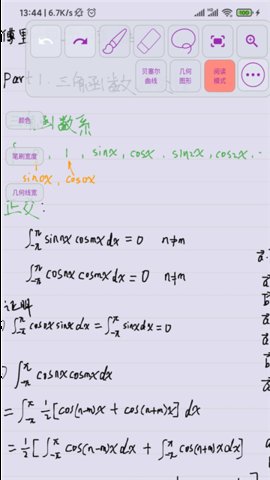 13:44 | 6.7K/s
100
傅里
贝塞尔
曲线
几何
图形
阅读
模式
Part 1. 三角函数
颜色
函数系
笔刷宽度
1, sinx, cosx, sin2x, cos2x, ...
sin0x, cos0x
几何线宽
正交:
∫_{-π}^{π} sin nx cos mx dx = 0 n≠m
∫_{-π}^{π} cos nx cos mx dx = 0 n≠m
证明
∫_{-π}^{π} cos0x sinx dx = ∫_{-π}^{π} sinx dx = 0
∫_{-π}^{π} cos nx cos mx dx
= ∫_{-π}^{π} 1/2 [cos(n-m)x + cos(n+m)x] dx
= 1/2 [∫_{-π}^{π} cos(n-m)x dx + ∫_{-π}^{π} cos(n+m)x dx]